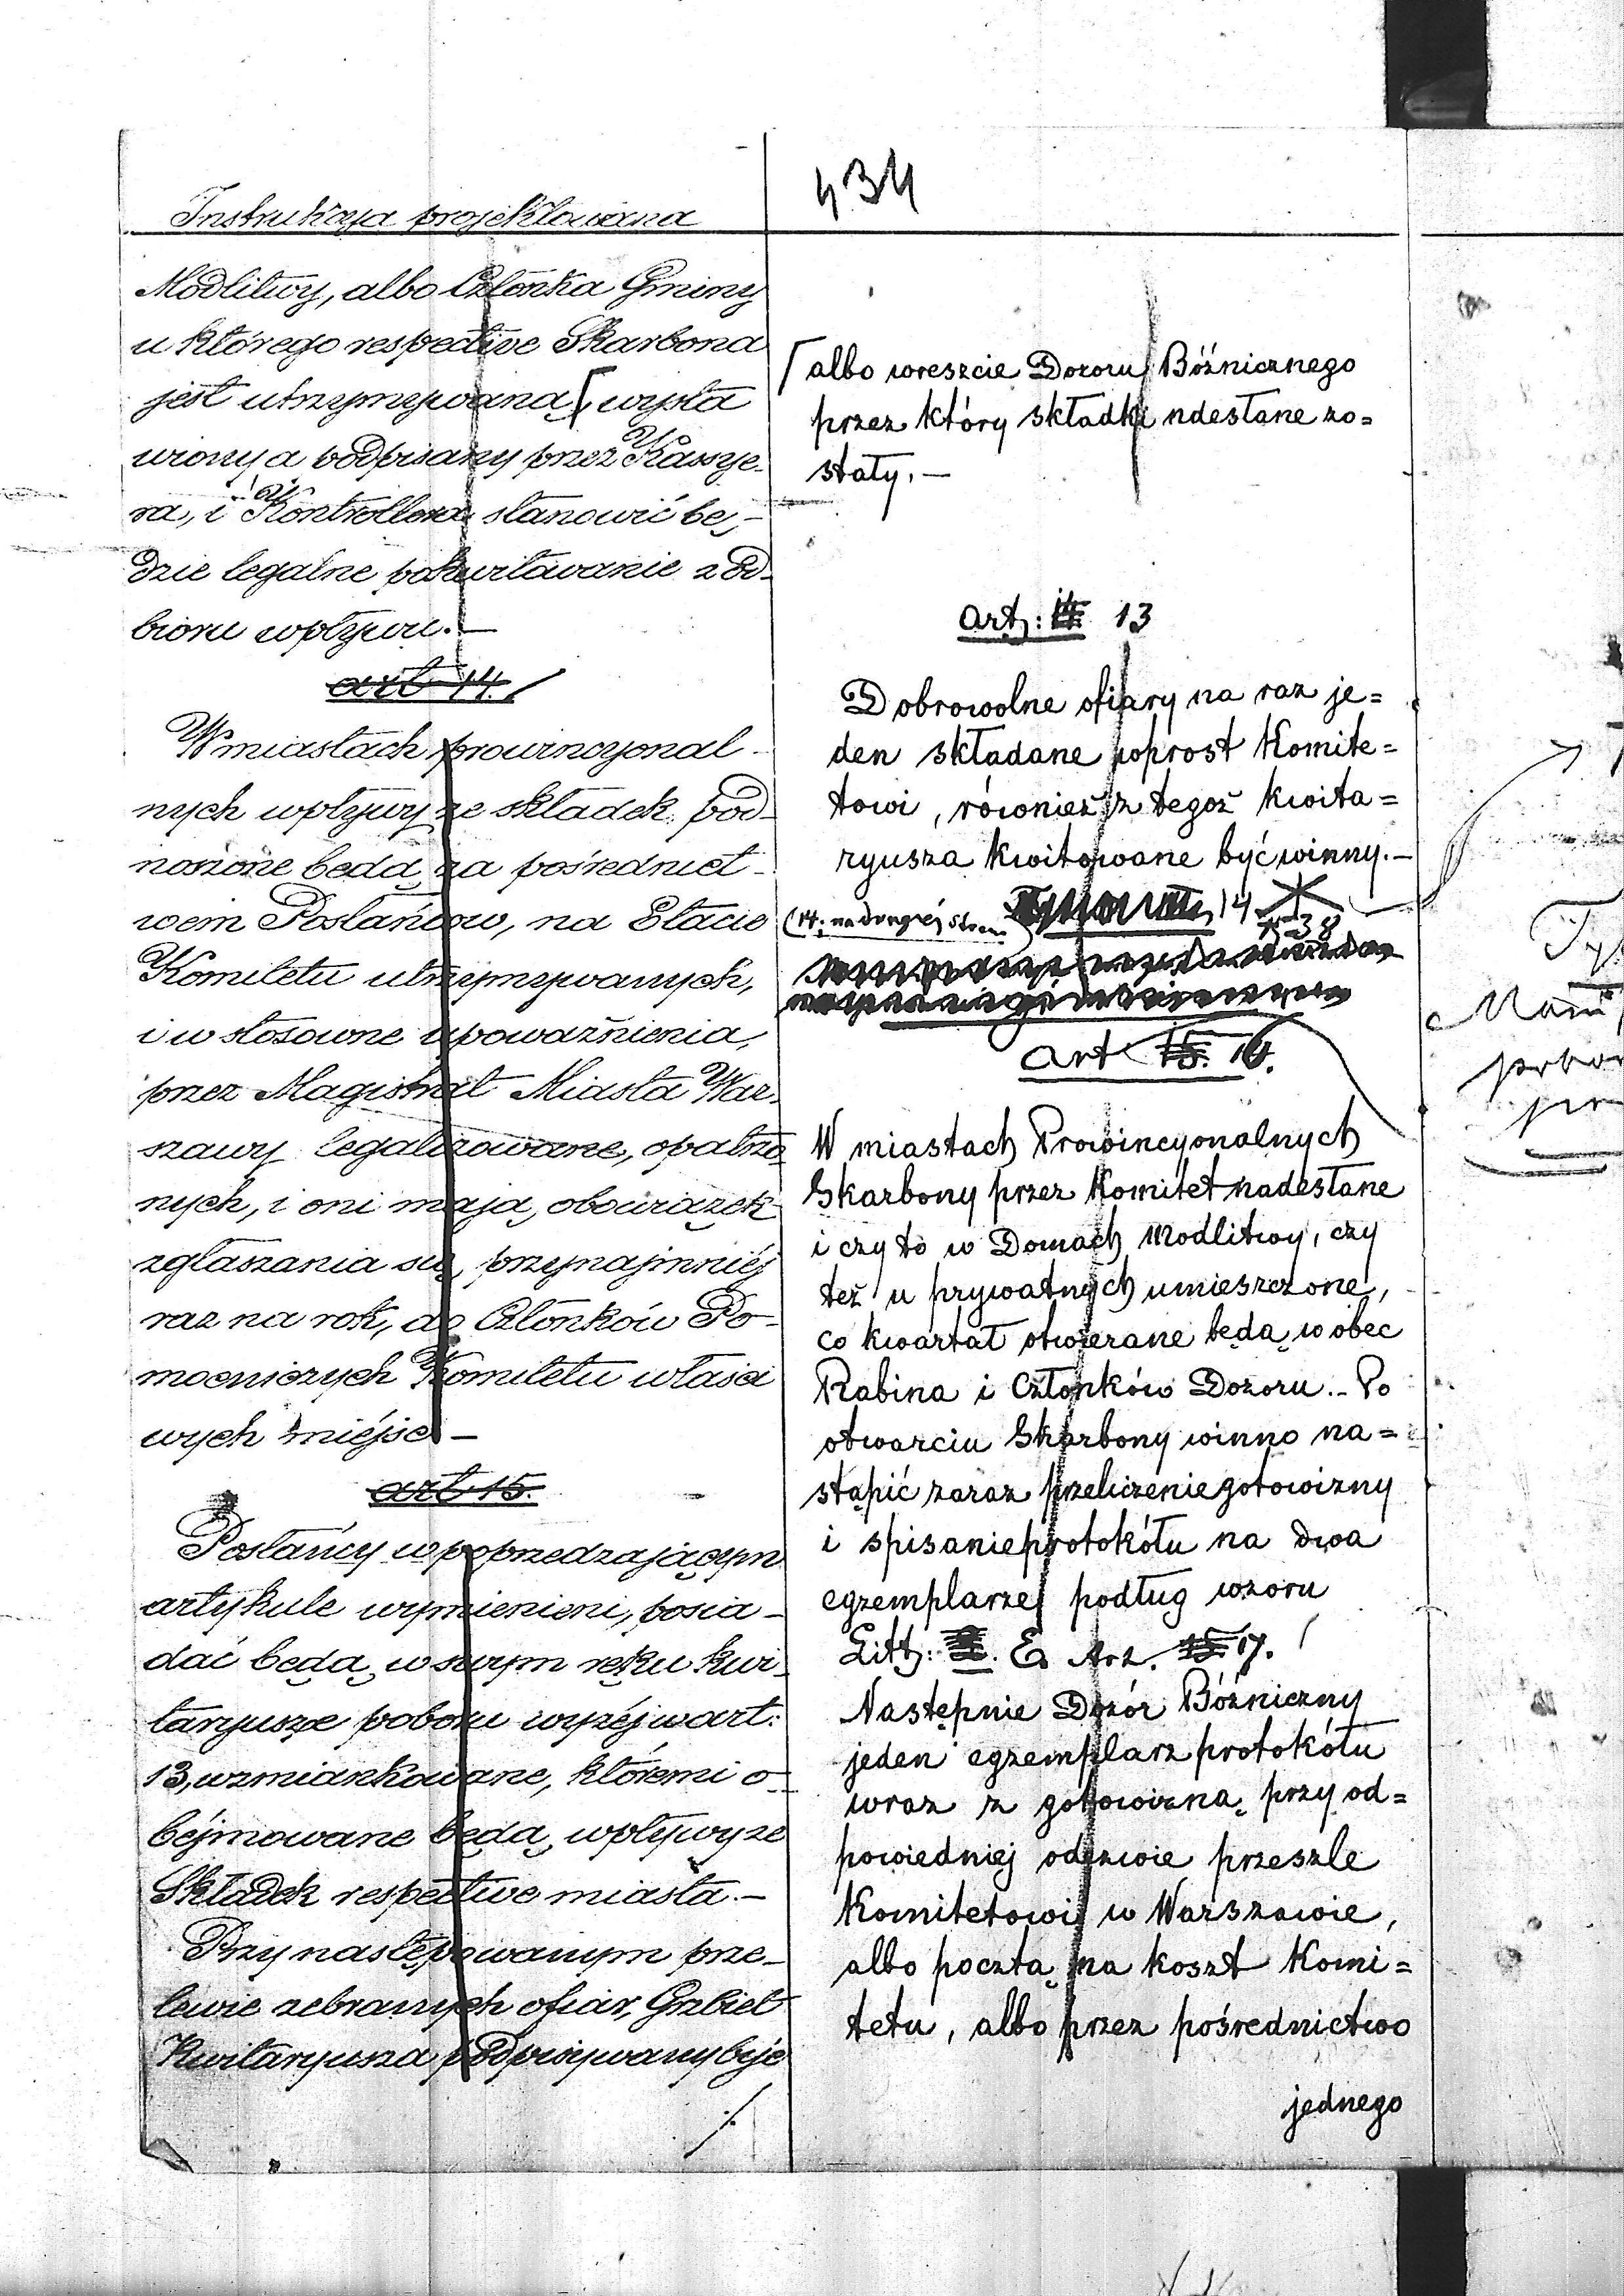 434
Instrukcyja projektowana
Modlitwy, albo Członka Gminy
u którego respective Skarbona
jest utrzymywaną, [ wysta
wiony a podpisany przez Kassye-
ra, i Kontrollera stanowić bę-
dzie legalne pokwitowanie z od-
bioru wpływu.—
art 14.
W miastach prowincyonal-
nych wpływy ze składek, pod-
noszone będą za pośrednict-
wem Posłańców, na Etacie
Komitetu utrzymywanych,
i w stosowne upoważnienia,
przez Magistrat Miasta War-
szawy legalizowane, opatrzo
nych, i oni mają, obowiązek
zgłaszania się, przynajmniéj
raz na rok, do Członków Po-
mocniczych Komitetu właści
wych miéjsc.—
art 15.
Posłańcy w poprzedzającym
artykule wymienieni, posia-
dać będą, w swym ręku kwi-
taryusze poboru wyżéj w art:
13, wzmiankowane, któremi o-
béjmowane będą, wpływy ze
Składek respective miasta.—
Przy następowanym prze-
lewie zebranych ofiar, Grzbiet
Kwitaryusza podpisywany być
[ albo wreszcie Dozoru Bóźnicznego
przez który składki ndesłane zo=
stały.—
art: 13
Dobrowolne ofiary na raz je=
den składane poprost Komite=
towi, również z tegoż kwita=
ryusza kwitowane być winny.—
(14. na drugiéj stron) 14
38
art 15. 16.
W miastach Prowincyonalnych
Skarbony przez Komitet nadesłane
i czy to w Domach Modlitwy, czy
też u prywatnych umieszczone,
co kwartał otwierane będą w obec
Rabina i Członków Dozoru.- Po
otwarciu Skarbony winno na=
stąpić zaraz przeliczenie gotowizny
i spisanie protokółu na dwa
egzemplarze podług wzoru
Litt: E. Art. 15 17.
Następnie Dozór Bóźniczny
jeden egzemplarz protokółu
wraz z gotowizną przy od=
powiedniej odezwie przeszle
Komitetowi w Warszawie,
albo pocztą na koszt Komi=
tetu, albo przez pośrednictwo
jednego